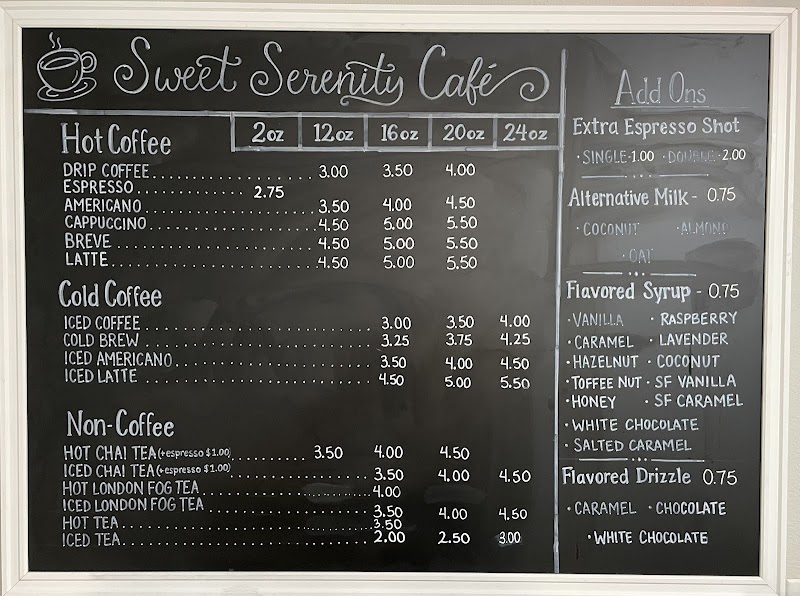 Sweet Serenity Café
2oz 12oz 16oz 20oz 24oz
Hot Coffee
DRIP COFFEE 3.00 3.50 4.00
ESPRESSO 2.75
AMERICANO 3.50 4.00 4.50
CAPPUCCINO 4.50 5.00 5.50
BREVE 4.50 5.00 5.50
LATTE 4.50 5.00 5.50
Cold Coffee
ICED COFFEE 3.00 3.50 4.00
COLD BREW 3.25 3.75 4.25
ICED AMERICANO 3.50 4.00 4.50
ICED LATTE 4.50 5.00 5.50
Non-Coffee
HOT CHAI TEA (+espresso $1.00) 3.50 4.00 4.50
ICED CHAI TEA (+espresso $1.00) 3.50 4.00 4.50
HOT LONDON FOG TEA 4.00
ICED LONDON FOG TEA 3.50 4.00 4.50
HOT TEA 3.50
ICED TEA 2.00 2.50 3.00
Add Ons
Extra Espresso Shot
· SINGLE-1.00 · DOUBLE-2.00
Alternative Milk - 0.75
· COCONUT · ALMOND
· OAT
Flavored Syrup - 0.75
· VANILLA · RASPBERRY
· CARAMEL · LAVENDER
· HAZELNUT · COCONUT
· TOFFEE NUT · SF VANILLA
· HONEY · SF CARAMEL
· WHITE CHOCOLATE
· SALTED CARAMEL
Flavored Drizzle 0.75
· CARAMEL · CHOCOLATE
· WHITE CHOCOLATE